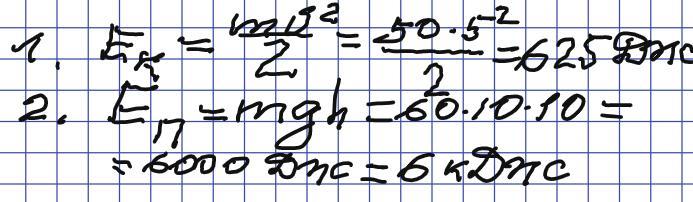 1. Eк = mv²/2 = 50·5²/2 = 625 Дж
2. Eп = mgh = 60·10·10 =
= 6000 Дж = 6 кДж